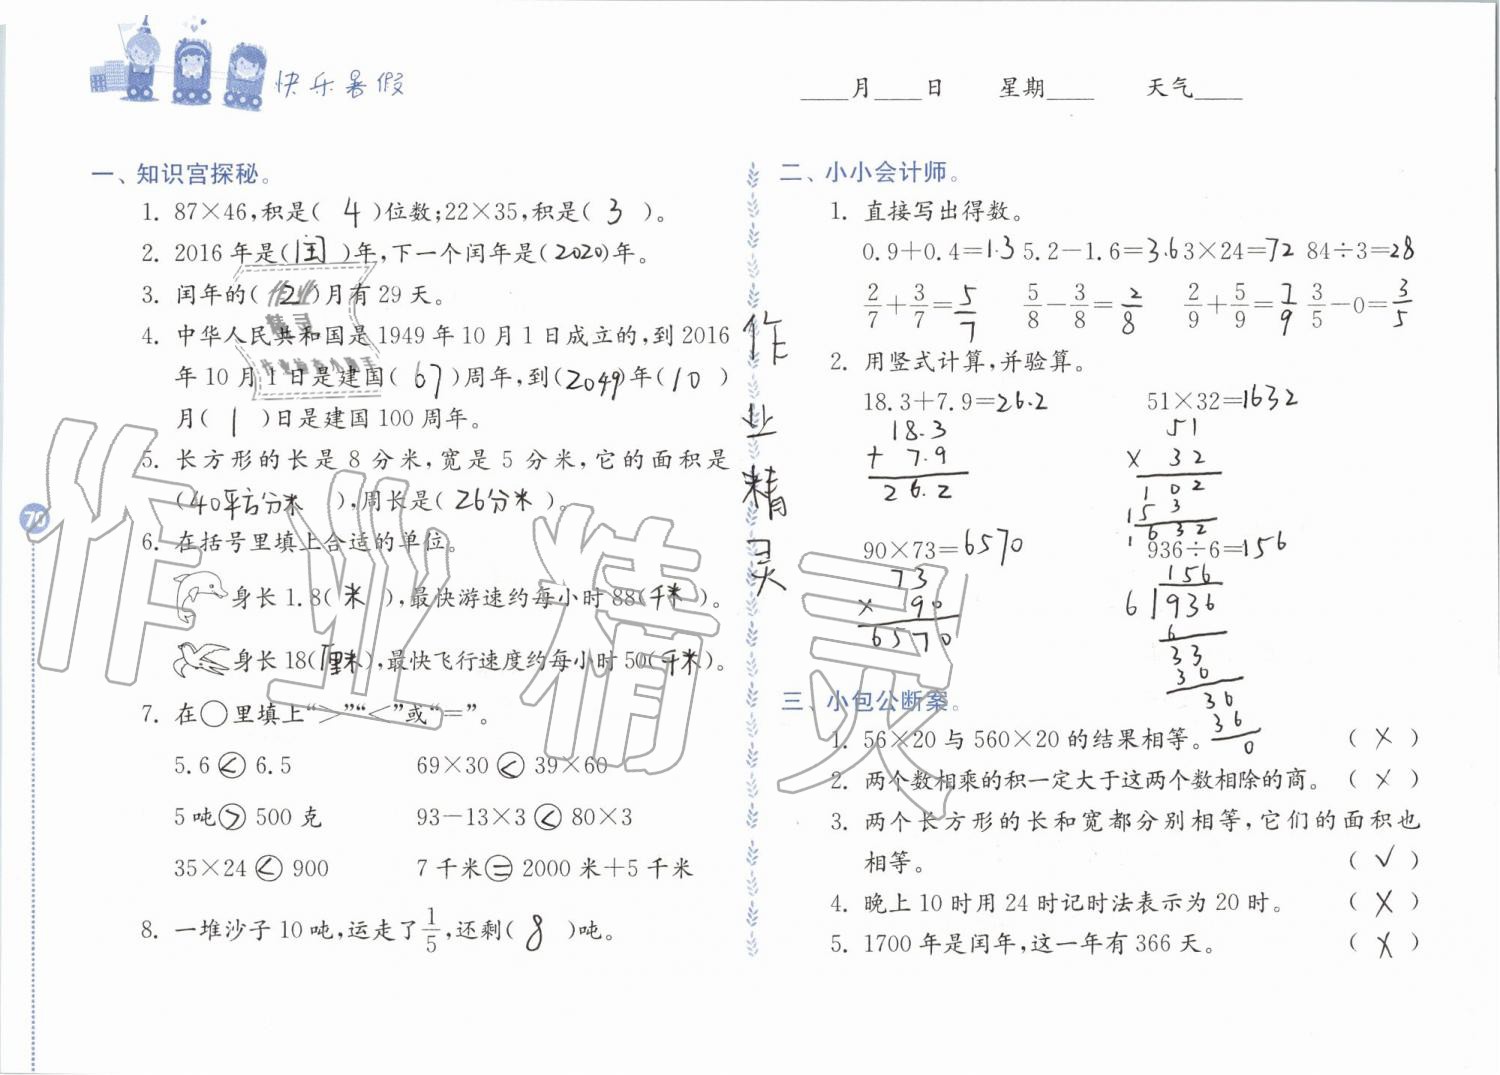 快乐暑假
____月____日 星期____ 天气____
一、知识宫探秘。
1. 87×46,积是( 4 )位数;22×35,积是( 3 )。
2. 2016年是(闰)年,下一个闰年是(2020)年。
3. 闰年的( 2 )月有29天。
4. 中华人民共和国是1949年10月1日成立的,到2016
年10月1日是建国( 67 )周年,到(2049)年(10)
月( 1 )日是建国100周年。
5. 长方形的长是8分米,宽是5分米,它的面积是
(40平方分米),周长是(26分米)。
6. 在括号里填上合适的单位。
身长1.8(米),最快游速约每小时88(千米)。
身长18(厘米),最快飞行速度约每小时50(千米)。
7. 在○里填上“>”“<”或“=”。
5.6 < 6.5 69×30 < 39×60
5吨 > 500克 93-13×3 < 80×3
35×24 < 900 7千米 = 2000米+5千米
8. 一堆沙子10吨,运走了1/5,还剩( 8 )吨。
70
作业精灵
二、小小会计师。
1. 直接写出得数。
0.9+0.4=1.3 5.2-1.6=3.6 3×24=72 84÷3=28
2/7+3/7=5/7 5/8-3/8=2/8 2/9+5/9=7/9 3/5-0=3/5
2. 用竖式计算,并验算。
18.3+7.9=26.2 51×32=1632
18.3
+ 7.9
26.2
51
× 32
102
153
1632
90×73=6570 936÷6=156
73
× 90
6570
156
6 936
6
33
30
36
36
0
三、小包公断案。
1. 56×20与560×20的结果相等。 ( × )
2. 两个数相乘的积一定大于这两个数相除的商。 ( × )
3. 两个长方形的长和宽都分别相等,它们的面积也
相等。 ( √ )
4. 晚上10时用24时记时法表示为20时。 ( × )
5. 1700年是闰年,这一年有366天。 ( × )
作业精灵